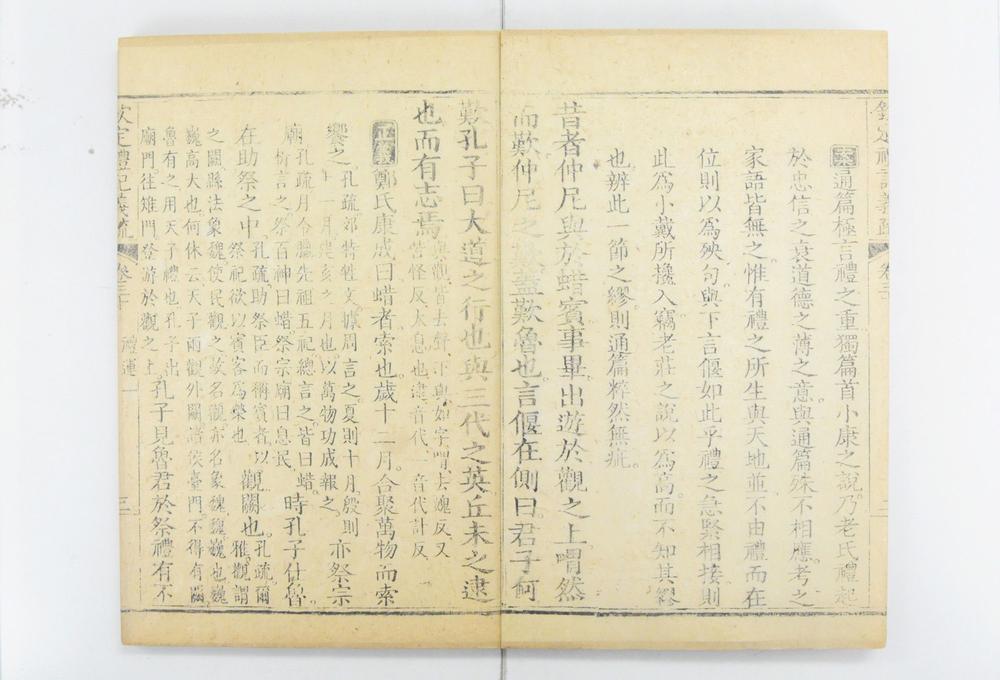 欽定禮記義疏 卷三十 二
案通篇極言禮之重獨篇首小康之說乃老氏禮起
於忠信之衰道德之薄之意與通篇殊不相應考之
家語皆無之惟有禮之所生與天地並不由禮而在
位則以為殃句與下言偃如此乎禮之急緊相接則
此為小戴所攙入竊老莊之說以為高而不知其繆
也辨此一節之繆則通篇粹然無疵
昔者仲尼與於蜡賓事畢出遊於觀之上喟然
而歎仲尼之歎蓋歎魯也言偃在側曰君子何
歎孔子曰大道之行也與三代之英丘未之逮
也而有志焉 與觀皆去聲下與如字喟去媿反又苦怪反大息也逮音代一音代計反
正義鄭氏康成曰蜡者索也歲十二月合聚萬物而索
饗之 孔疏郊特牲文據周言之夏則十月殷則十一月建亥之月也以萬物功成報之 亦祭宗
廟 孔疏月令臘先祖五祀總言之皆曰蜡析言之祭百神曰蜡祭宗廟曰息民 時孔子仕魯
在助祭之中 孔疏助祭臣而稱賓者以祭祀欲以賓客為榮也 觀闕也 孔疏爾雅觀謂
之闕縣法象魏使民觀之故名觀亦名象魏魏巍也魏
巍高大也何休云天子兩觀外闕諸侯臺門不得有闕
魯有之用天子禮也孔子出
廟門往雉門祭游於觀之上 孔子見魯君於祭禮有不
欽定禮記義疏 卷三十 禮運一 三